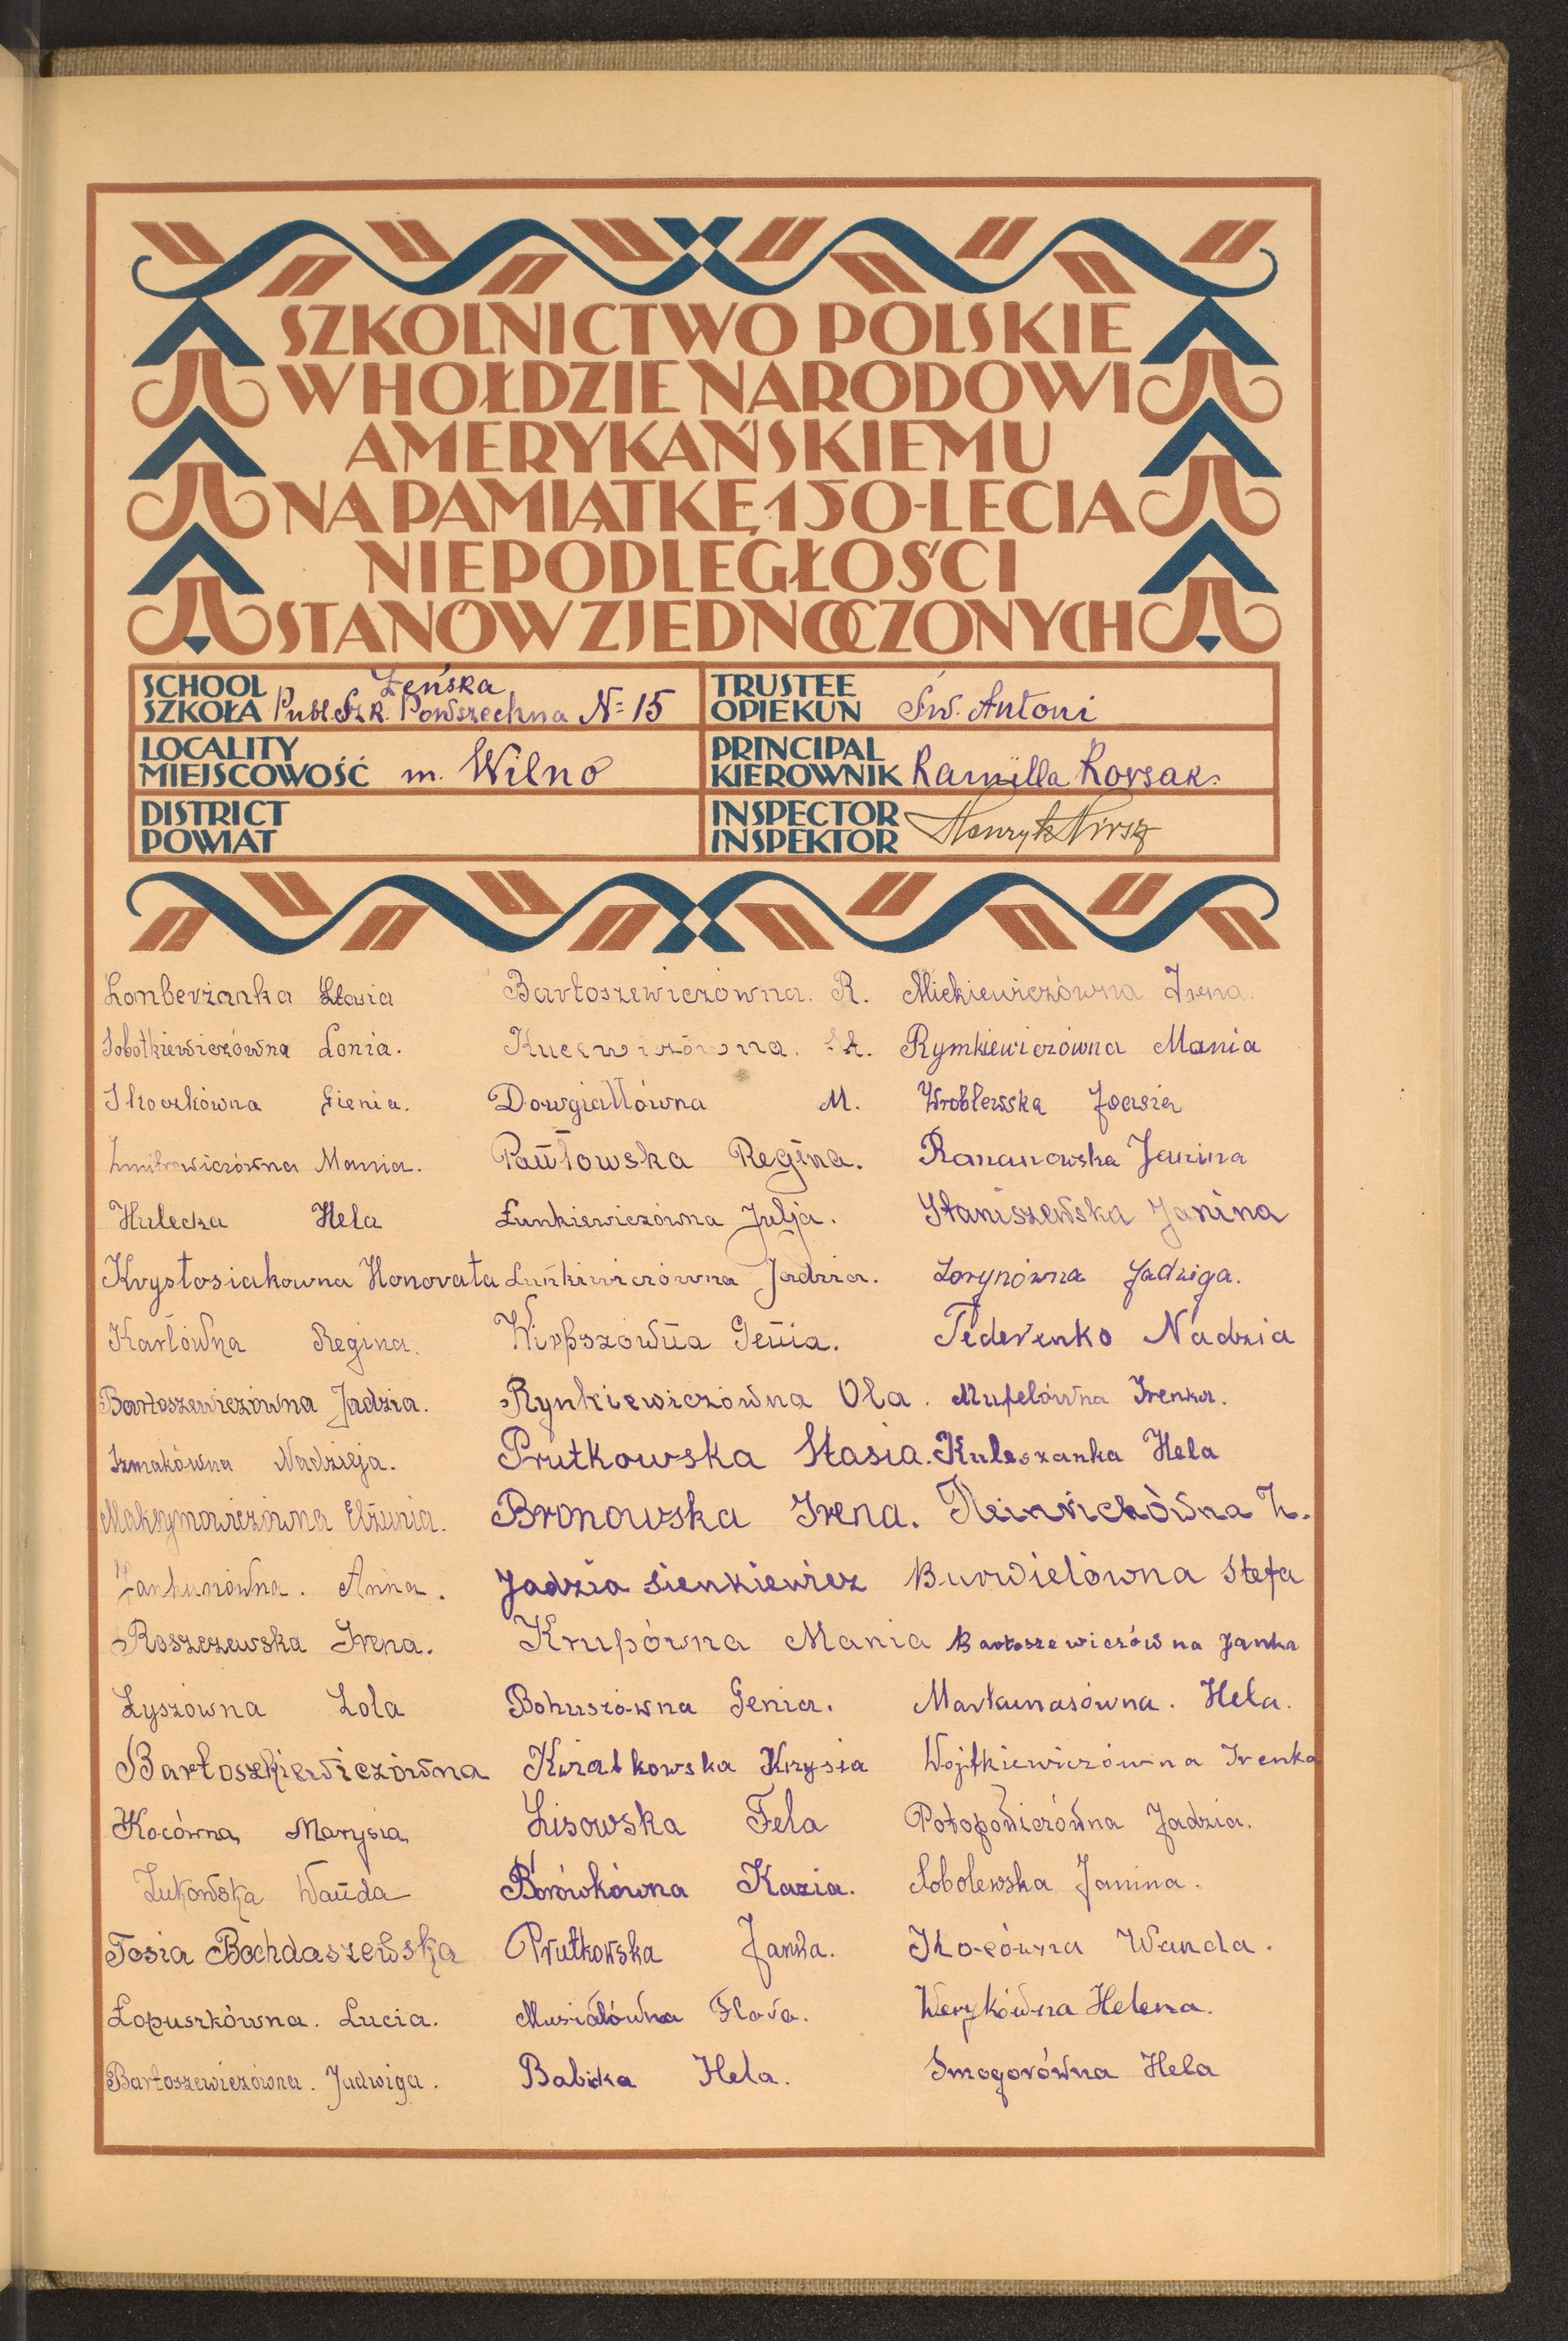 SZKOLNICTWO POLSKIE
W HOŁDZIE NARODOWI
AMERYKAŃSKIEMU
NA PAMIĄTKĘ 150-LECIA
NIEPODLEGŁOŚCI
STANÓW ZJEDNOCZONYCH
SCHOOL
SZKOŁA
Żeńska
Publ. Szk. Powszechna № 15
TRUSTEE
OPIEKUN
Św. Antoni
LOCALITY
MIEJSCOWOŚĆ
m. Wilno
PRINCIPAL
KIEROWNIK
Kamilla Korsak.
DISTRICT
POWIAT
INSPECTOR
INSPEKTOR
Henryk
Lonberżanka Stasia
Sobotkiewiczówna Lonia.
Skoczkówna Gienia.
Żmitrowiczówna Mania.
Hulecka Hela
Krystosiakowna Honorata
Karlówna Regina.
Bartoszewiczówna Jadzia.
Szmakówna Nadzieja.
Maksymowiczówna Elżunia.
Anna.
Roszczewska Irena.
Łyszówna Lola
Bartoszkiewiczówna
Kocówna Marysia
Żukowska Wanda
Tosia Bochdaszewska
Łopuszkówna. Lucia.
Bartoszewiczówna. Jadwiga.
Bartoszewiczówna. R.
Kucewiczówna.
Dowgiałłówna M.
Pawłowska Regina.
Łunkiewiczówna Julja.
Łunkiewiczówna Jadzia.
Wirpszówna Genia.
Rynkiewiczówna Ola.
Prutkowska Stasia.
Bronowska Irena.
Jadzia Sienkiewicz
Krupówna Mania
Bohuszówna Genia.
Kwiatkowska Krysia
Lisowska Fela
Borówkówna Kazia.
Prutkowska Janka.
Musiałówna Flora.
Babicka Hela.
Mickiewiczówna Irena.
Rymkiewiczówna Mania
Wroblewska Joasia
Rananowska Janina
Staniszewska Janina
Lorynówna Jadwiga.
Federenko Nadzia
Mufelówna Irenka.
Kuleszanka Hela
Burwielówna Stefa
Bartoszewiczówna Janka
Markunasówna. Hela.
Wojtkiewiczówna Irenka
Potopowiczówna Jadzia.
Sobolewska Janina.
Wanda.
Werykówna Helena.
Smogorówna Hela